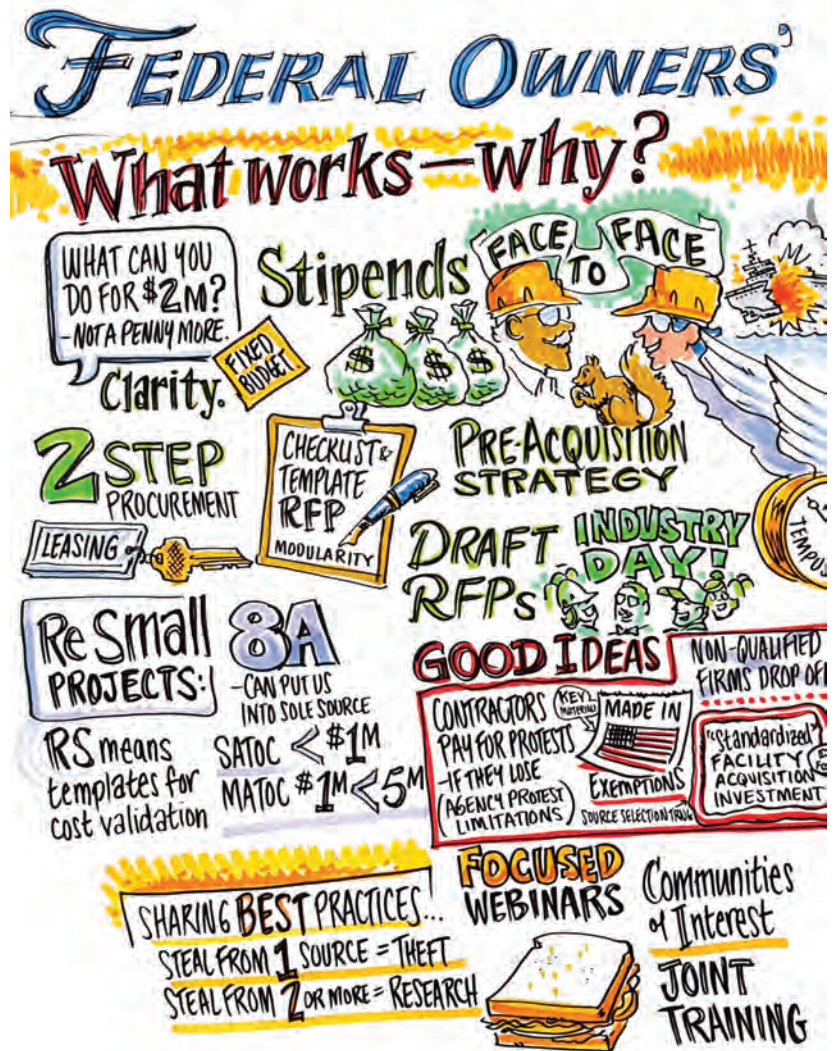 FEDERAL OWNERS'
What works—why?
WHAT CAN YOU
DO FOR $2M?
-NOT A PENNY MORE.
Clarity.
FIXED
BUDGET
Stipends
$ $ $
FACE TO FACE
2 STEP
PROCUREMENT
LEASING
CHECKLIST &
TEMPLATE
RFP
MODULARITY
PRE-ACQUISITION
STRATEGY
DRAFT
RFPs
INDUSTRY
DAY!
TEMPUS
Re Small
PROJECTS:
8A
-CAN PUT US
INTO SOLE SOURCE
RS means
templates for
cost validation
SATOC < $1M
MATOC $1M < 5M
GOOD IDEAS
CONTRACTORS
PAY FOR PROTESTS
-IF THEY LOSE
(AGENCY PROTEST
LIMITATIONS)
KEY
MADE IN
EXEMPTIONS
SOURCE SELECTION
NON-QUALIFIED
FIRMS DROP OF
"Standardized"
FACILITY
ACQUISITION
INVESTMENT
SHARING BEST PRACTICES...
STEAL FROM 1 SOURCE = THEFT
STEAL FROM 2 OR MORE = RESEARCH
FOCUSED
WEBINARS
Communities
of Interest
JOINT
TRAINING